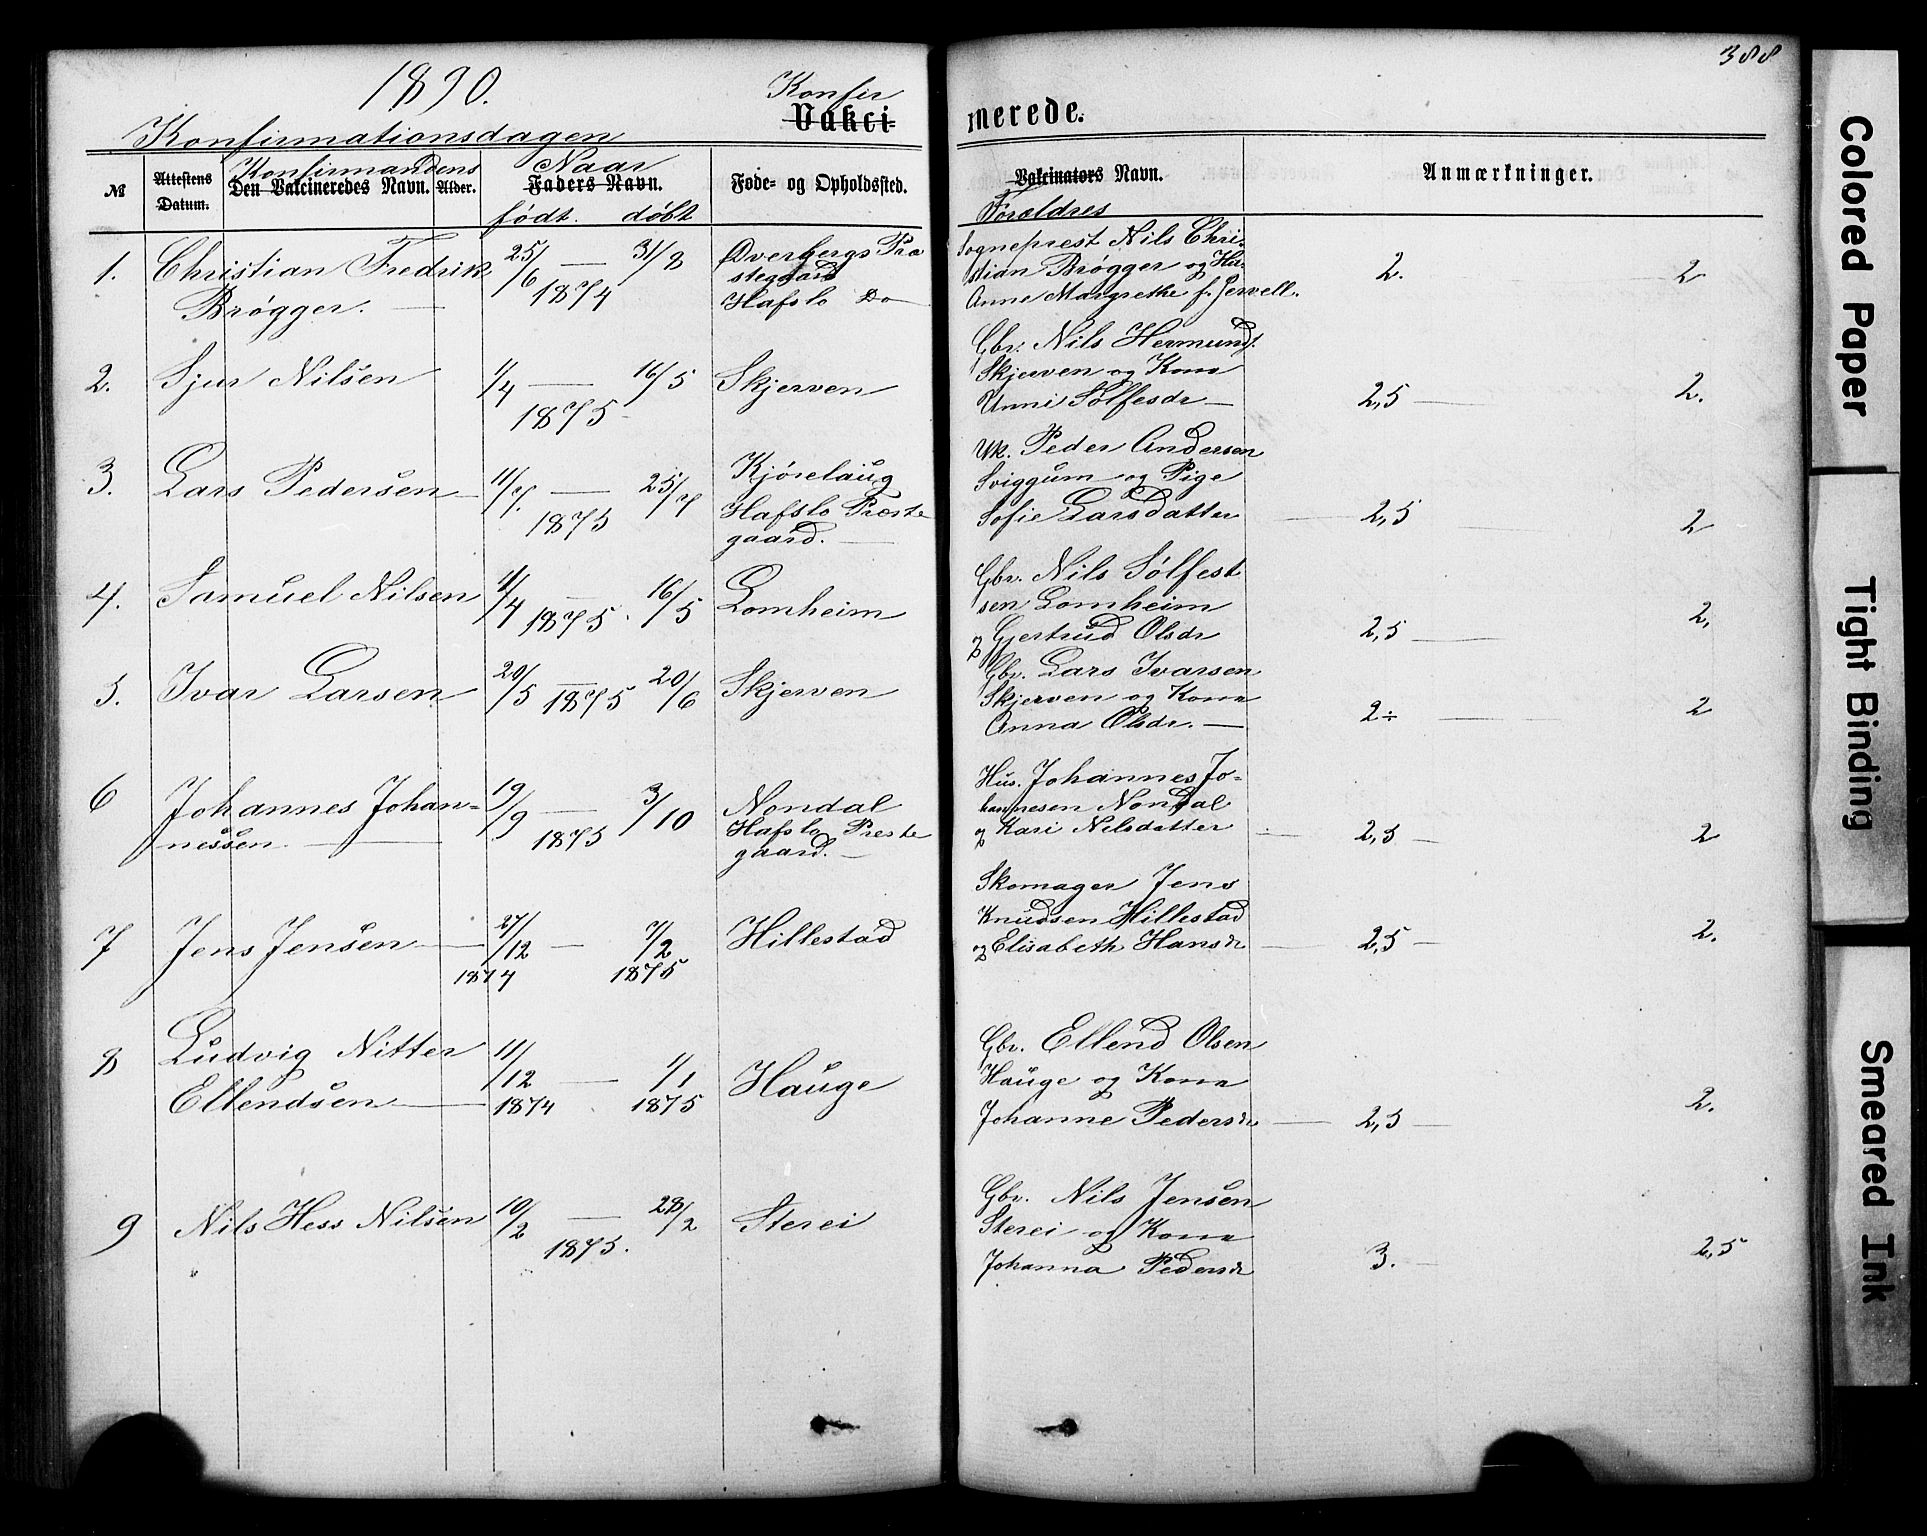 1890.
388
Konfirmationsdagen
Konfir
Vakci
nerede.
No
Attestens Datum.
Konfirmandens
Den Vakcineredes Navn.
Alder.
Naar
Faders Navn.
født. døbt
Føde- og Opholdssted.
Vakcinators Navn.
Forældres
Anmærkninger.
1. Christian Fredrik 25/6 — 31/8 Øverbergs Præ
Brøgger. — 1874 stegaard
Hafslo Do —
Sogneprest Nils Chri-
stian Brøgger og Hu- 2. 2
Anne Margrethe f. Jervell.
2. Sjur Nilsen 1/4 — 16/5 Skjerven
1875
Gbr. Nils Hermunds.
Skjerven og Kona
Unni Solfesdr — 2,5 — 2.
3. Lars Pedersen 11/7 — 25/7 Kjørelaug
1875 Hafslo Preste
gaard. —
Uk. Peder Andersen
Sviggum og Pige
Sofie Larsdatter — 2,5 — 2
4. Samuel Nilsen 1/4 — 16/5 Lomheim
1875.
Gbr. Nils Sølfest
sen Lomheim
og Gjertrud Olsdr 2,5 — 2,
5. Ivar Larsen 20/5 — 20/6 Skjerven
1875
Gbr. Lars Ivarsen
Skjerven og Kona
Anna Olsdr. — 2÷ — 2
6 Johannes Johan- 19/9 — 3/10 Nondal
nessen — 1875 Hafslo Preste
gaard. —
Hus. Johannes Jo-
hannesen Nondal
og Kari Nelsdatter 2,5 — 2
7 Jens Jensen — 27/12 — 7/2 Hillestad
1874 1875
Skomager Jens
Knudsen Hillestad
og Elisabeth Hansdr — 2,5 — 2.
8 Ludvig Nitter 11/12 — 1/1 Hauge
Ellendsen — 1874 1875
Gbr. Ellend Olsen
Hauge og Kona
Johanne Pedersdr — 2,5 — 2.
9 Nils Hess Nilsen 10/2 — 28/2 Sterei
1875.
Gbr. Nils Jensen
Sterei og Kona
Johanna Pedersdr 3. — 2,5
Colored Paper
Tight Binding
Smeared Ink